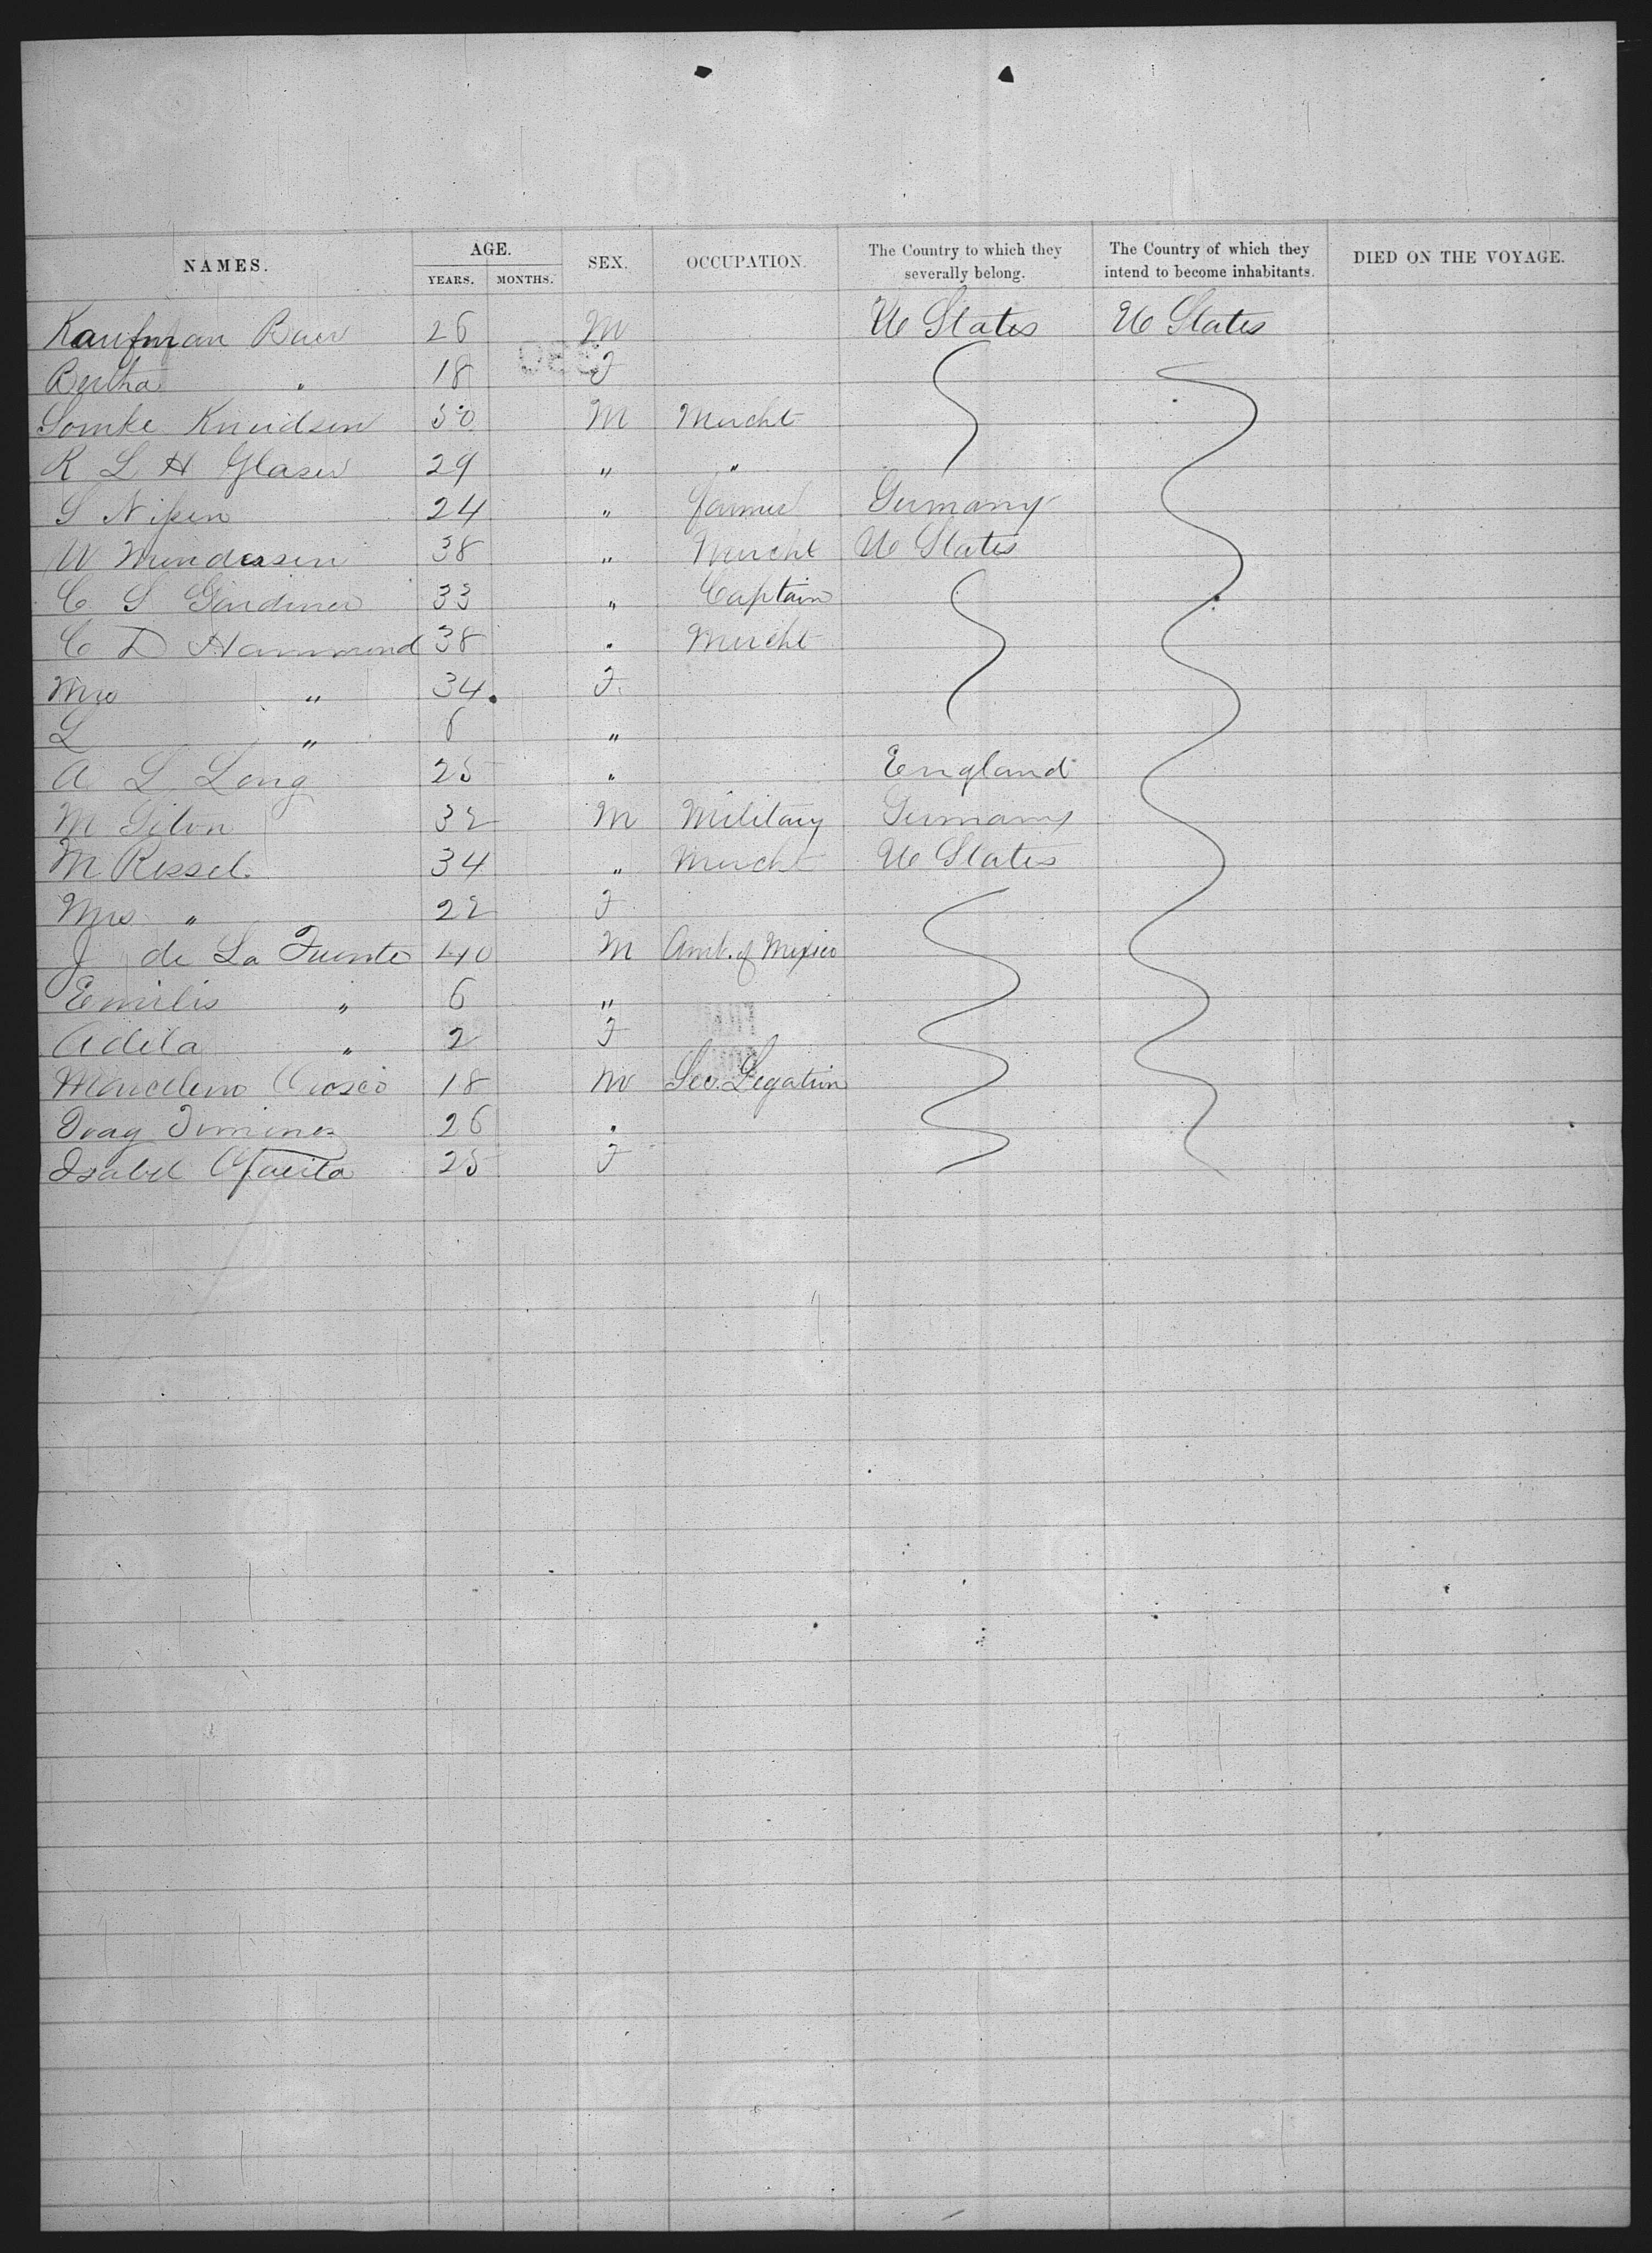 NAMES. AGE. SEX. OCCUPATION. The Country to which they severally belong. The Country of which they intend to become inhabitants. DIED ON THE VOYAGE.
YEARS. MONTHS.
Kaufman Baer 26 M U States U States
Bertha " 18 F
Lomke Knudsen 30 M Mercht
R L H Glaser 29 " "
S Nissen 24 " farmer Germany
W 38 " Mercht U States
C S Gardiner 33 " Captain
C D Hammond 38 " Mercht
Mrs " 34 F
L " 6 "
A L Long 25 " England
M 32 M Military Germany
M Ressel. 34 " Mercht U States
Mrs " 22 F
J de La Fuente 40 M Amb. of Mexico
Emilio " 6 "
Adela " 2 F
Marcelino 18 M Sec. Legation
26 "
Isabel 25 F